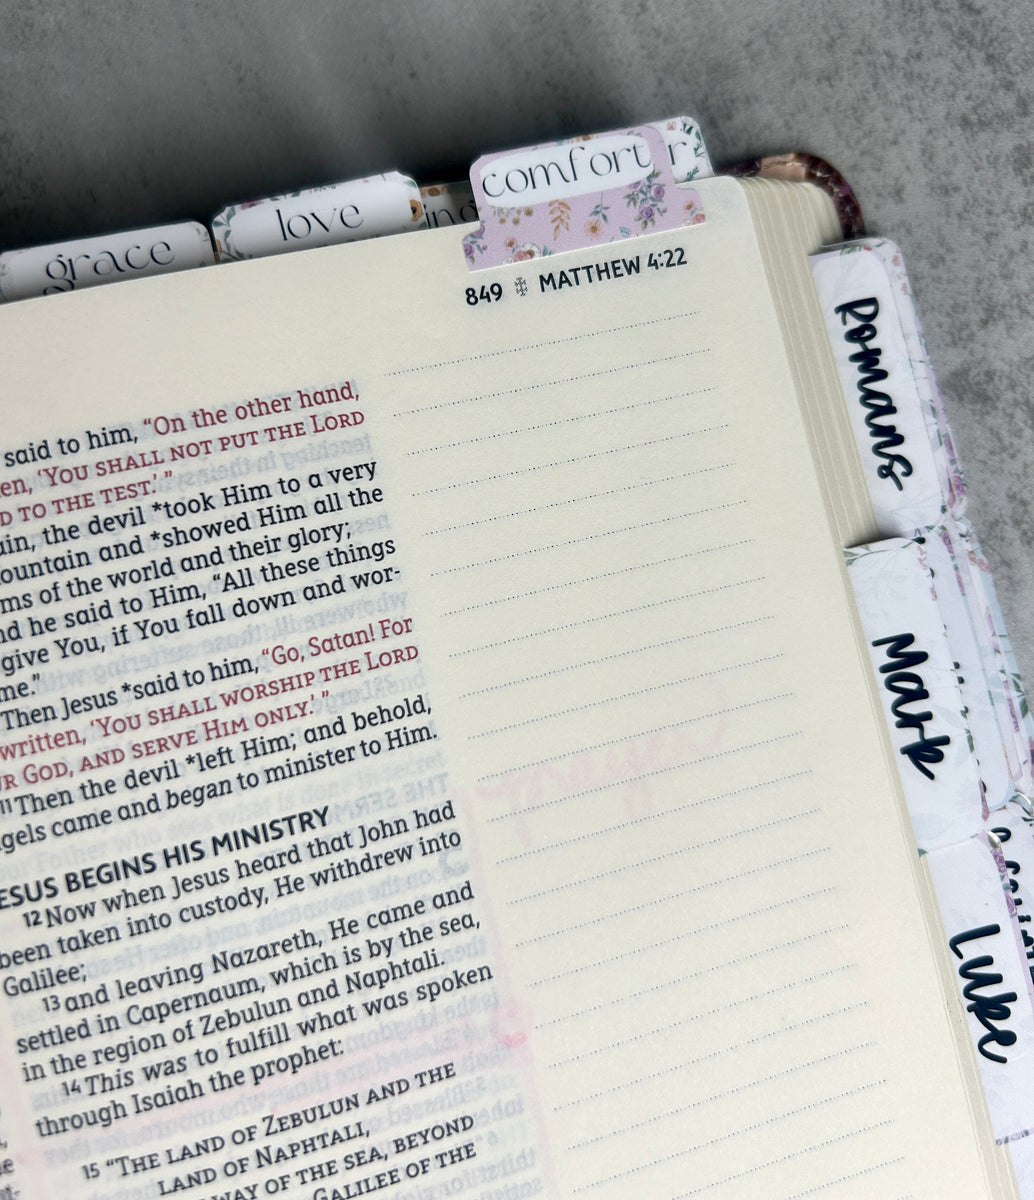 grace
love
ing
comfort
r
849 MATTHEW 4:22
said to him, “On the other hand,
en, ‘YOU SHALL NOT PUT THE LORD
D TO THE TEST.’ ”
ain, the devil *took Him to a very
ountain and *showed Him all the
ms of the world and their glory;
nd he said to Him, “All these things
give You, if You fall down and wor-
me.”
Then Jesus *said to him, “Go, Satan! For
written, ‘YOU SHALL WORSHIP THE LORD
UR GOD, AND SERVE HIM ONLY.’ ”
11 Then the devil *left Him; and behold,
ngels came and began to minister to Him.
ESUS BEGINS HIS MINISTRY
12 Now when Jesus heard that John had
been taken into custody, He withdrew into
Galilee;
13 and leaving Nazareth, He came and
settled in Capernaum, which is by the sea,
in the region of Zebulun and Naphtali.
14 This was to fulfill what was spoken
through Isaiah the prophet:
15 “THE LAND OF ZEBULUN AND THE
LAND OF NAPHTALI,
WAY OF THE SEA, BEYOND
GALILEE OF THE
Romans
Mark
Luke